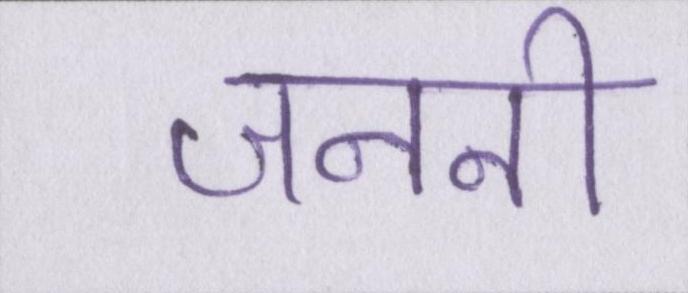 जननी